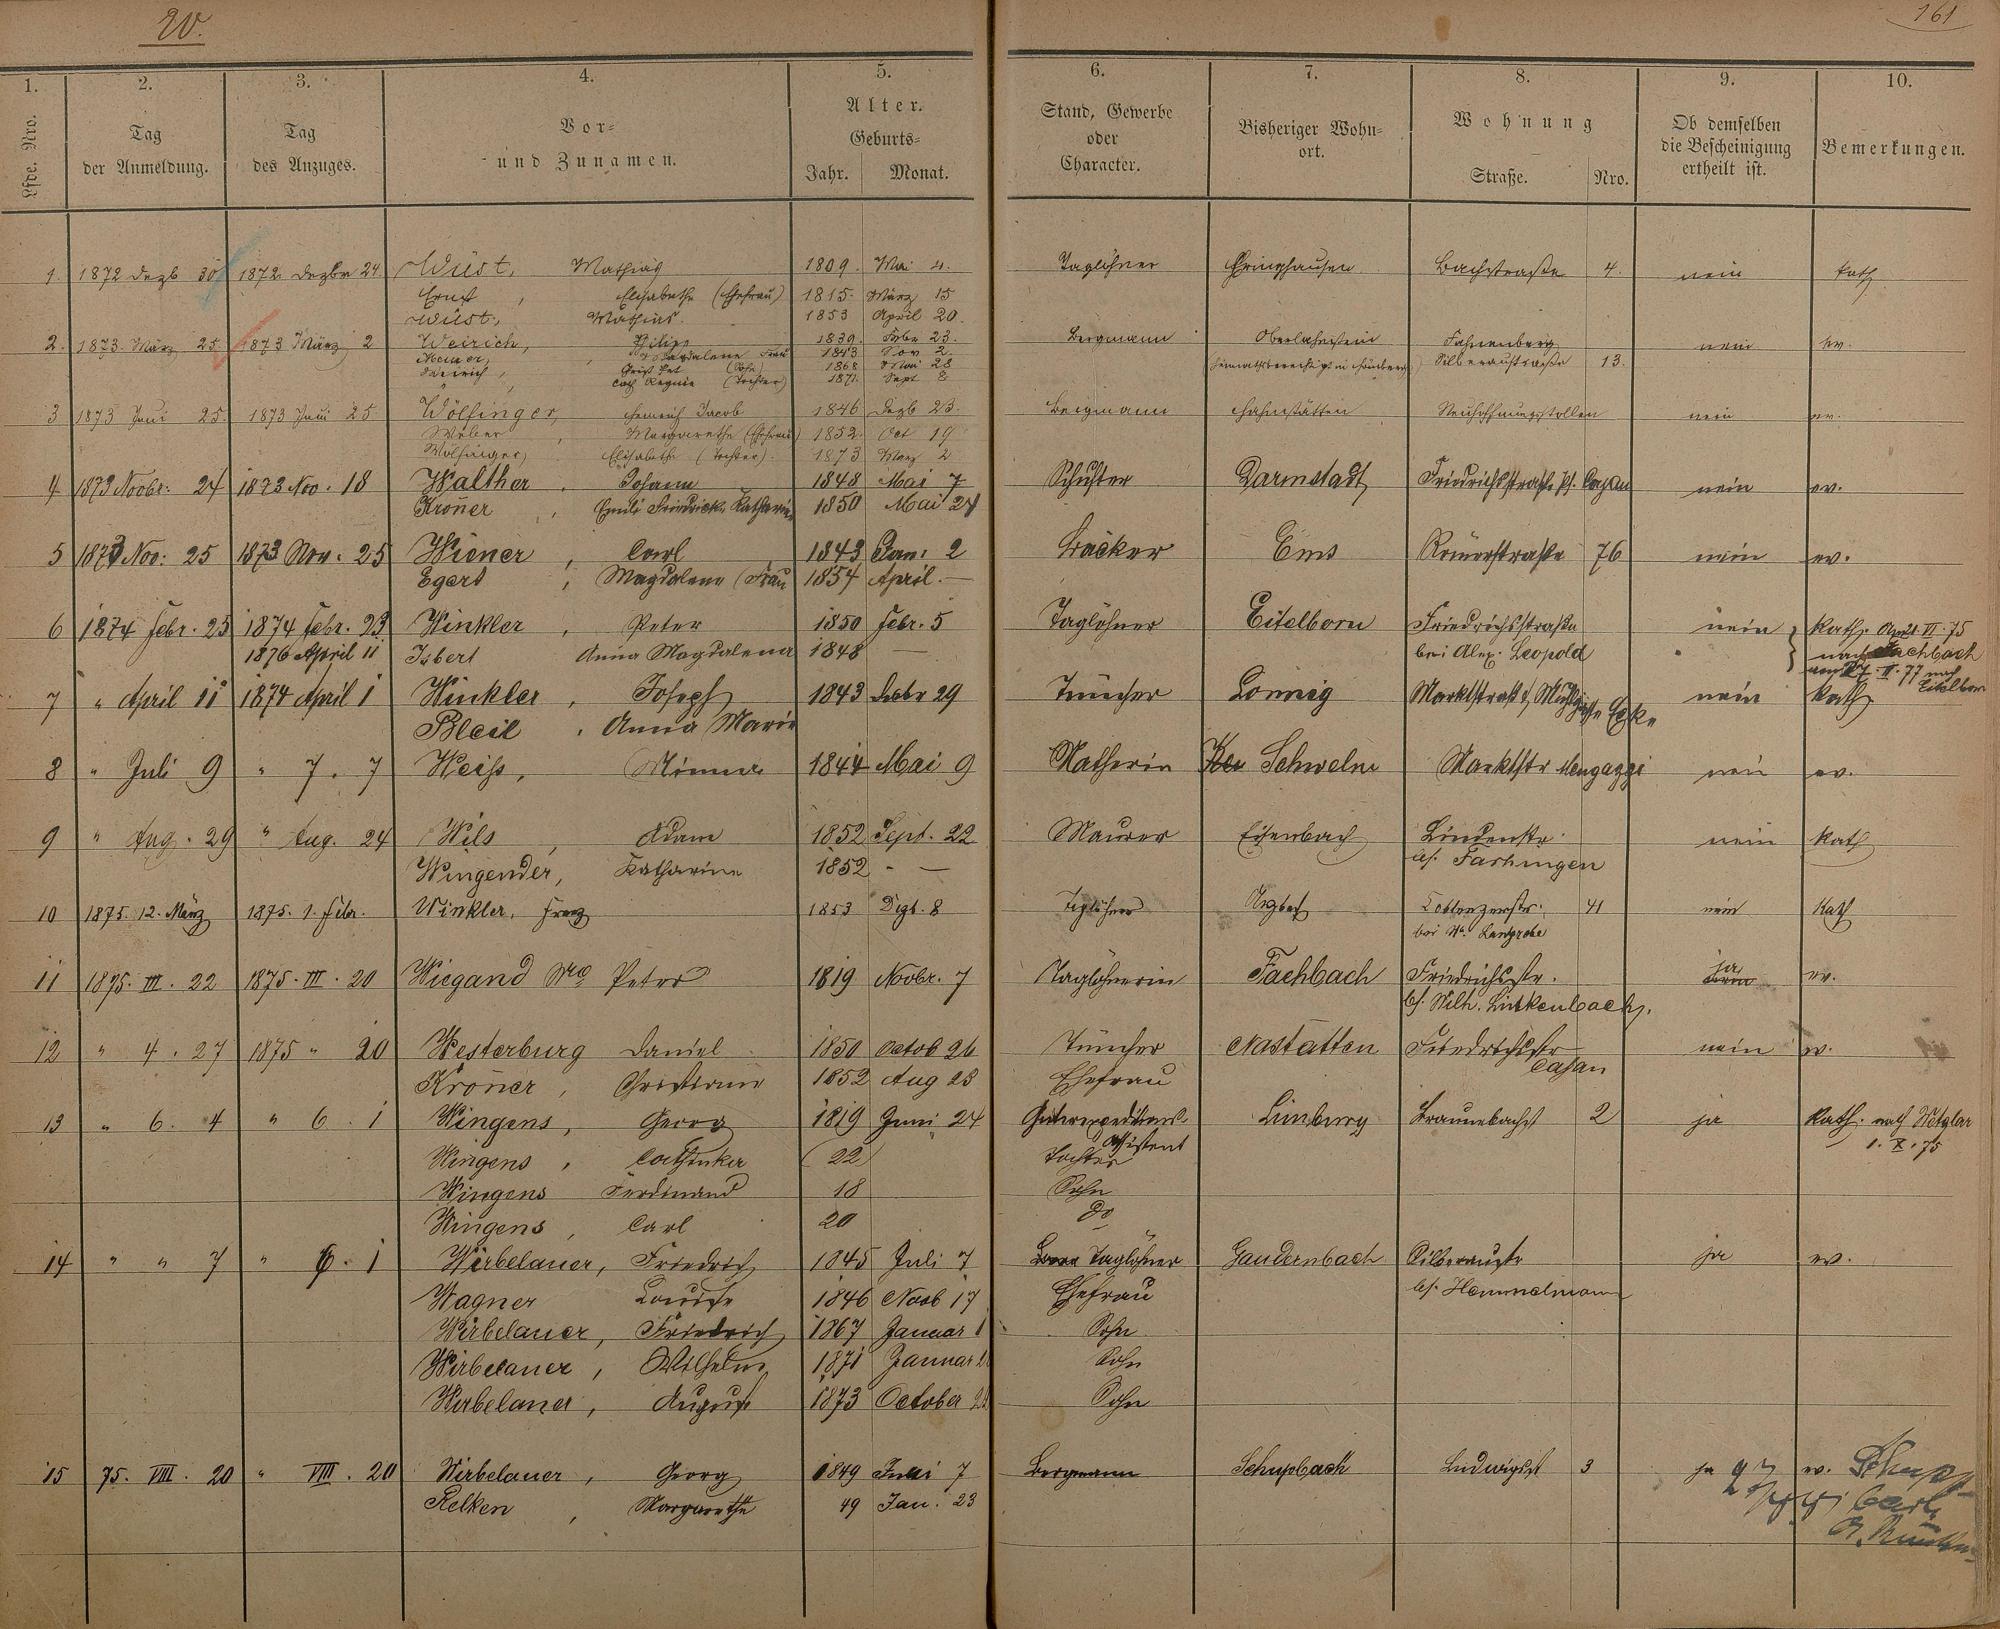 W.
161
1.
2.
3.
4.
5.
6.
7.
8.
9.
10.
Lfde. Nro.
Tag der Anmeldung.
Tag des Anzuges.
Vor- und Zunamen.
Alter.
Geburts-
Jahr. Monat.
Stand, Gewerbe oder Character.
Bisheriger Wohn- ort.
Wohnung
Straße. Nro.
Ob demselben die Bescheinigung ertheilt ist.
Bemerkungen.
1. 1872 Dezb 30 1872 Dezbr 24. Wüst, Mathias 1809. Mai 4. Taglöhner Bachstraße 4. nein kath
Ernst, Elisabethe (Ehefrau) 1815. März 15
Wüst, Mathias. 1853 April 20.
2. 1873. März 25. 1873 März 2 Weirich, Philipp 1839. Febr 23. Bergmann Oberlahnstein Fahnenberg nein ev.
Magdalena Frau 1843 Nov 2. Silberaustraße 13.
Weirich, (Sohn) 1868 Mai 28
" (Tochter) 1871. Sept 8
3 1873 Juni 25. 1873 Juni 25 Wölfinger, Heinrich Jacob 1846 Dezb 23. Bergmann Hahnstätten Neuhoffnungsstollen nein ev.
Weber, Margarethe (Ehefrau) 1852. Oct 19
Wölfinger, Elisabethe (Tochter). 1873 März 2
4 1873 Novbr: 24 1873 Nov. 18 Walther, Johann 1848 Mai 7 Schuster Darmstadt Friedrichsstraße bs. Casan nein ev.
Kroner, Emilie Friedricke Katharine 1850 Mai 24
5 1873 Nov: 25 1873 Nov. 25 Wiener, Carl 1843 Jan: 2 Bäcker Ems Römerstraße 76 nein ev.
Egert, Magdalena (Frau 1854 April. —
6 1874 Febr. 25 1874 Febr. 23 Winkler, Peter 1850 Febr. 5 Taglöhner Eitelborn Friedrichsstraße nein kath. VI. 75
1876 April 11 Isbert Anna Magdalena 1848 — bei Alex. Leopold nach Fachbach
II. 77 nach Eitelborn
7 " April 11 1874 April 1 Winkler, Joseph 1843 Debr 29 Tüncher Lonnig Marktstraße nein kath
Bleil, Anna Marie
8 " Juli 9 " 7. 7 Weiss, Minna 1844 Mai 9 Natherin Schwelm Marktstr Mengazzi nein ev.
9 " Aug. 29 " Aug. 24 Wils, Adam 1852 Sept. 22 Maurer Eisenbach Lindenstr. nein kath
Wingender, Katharine 1852 - — bs. Fashingen
10 1875. 12. März 1875. 1. Febr. Winkler, Franz 1853 Dezb. 8 Taglöhner Arzbach Coblenzerstr. 41 nein Kath
11 1875. III. 22 1875. III. 20 Wiegand Wwe Peter 1819 Novbr. 7 Taglöhnerin Fachbach Friedrichsstr. ja ev.
bs. Wilh. Linkenbach.
12 " 4. 27 1875 " 20 Westerburg Daniel 1850 Octob 26 Tüncher Nastätten Friedrichsstr nein ev.
Casan
Kroner, Christiane 1852 Aug 28 Ehefrau
13 " 6. 4 " 6. 1 Wingens, Georg 1819 Juni 24 Güterexpeditions- Limburg Braunebachst 2 ja kath. nach Wetzlar
assistent 1. X. 75
Wingens, Cathinka (22) Tochter
Wingens Ferdinand 18 Sohn
Wingens, Carl 20 do
14 " " 7 " 6. 1 Wirbelauer, Friedrich 1845 Juli 7 Taglöhner Gaudernbach Silberaustr ja ev.
Wagner Louise 1846 Novb 17 Ehefrau bs. Hemmelmann
Wirbelauer, Friedrich 1867 Januar 1 Sohn
Wirbelauer, Wilhelm 1871 Januar Sohn
Wirbelauer, August 1873 October Sohn
15 75. VIII. 20 " VIII. 20 Wirbelauer, Georg 1849 Juni 7 Bergmann Schupbach Ludwigst 3 ja ev.
Relken, Margarethe 49 Jan. 23